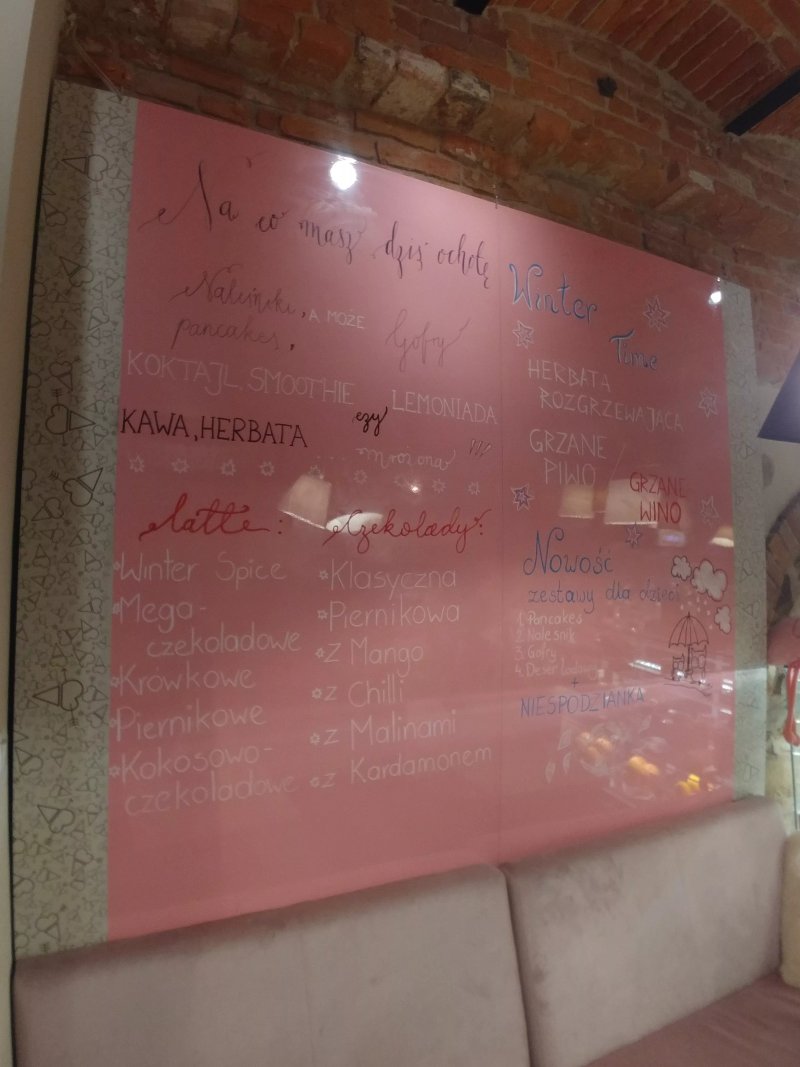 Na co masz dziś ochotę
Naleśniki, A MOŻE Gofry
pancakes,
KOKTAJL, SMOOTHIE LEMONIADA
KAWA, HERBATA czy
mrożona
Latte:
Winter Spice
Mega-
czekoladowe
Krówkowe
Piernikowe
Kokosowo-
czekoladowe
Czekolady:
Klasyczna
Piernikowa
z Mango
z Chilli
z Malinami
z Kardamonem
Winter
Time
HERBATA
ROZGRZEWAJĄCA
GRZANE
PIWO
GRZANE
WINO
Nowość
zestawy dla dzieci
1. Pancakes
2. Naleśnik
3. Gofry
4. Deser lodowy
+
NIESPODZIANKA